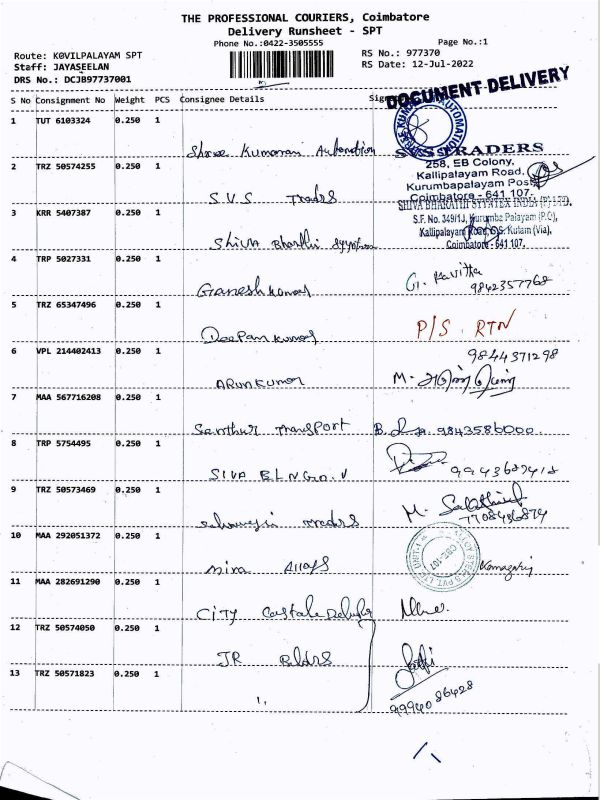 THE PROFESSIONAL COURIERS, Coimbatore
Delivery Runsheet - SPT
Phone No.:0422-3505555
Page No.:1
Route: KOVILPALAYAM SPT
Staff: JAYASEELAN
DRS No.: DCJB97737001
RS No.: 977370
RS Date: 12-Jul-2022
DOCUMENT DELIVERY
S No Consignment No Weight PCS Consignee Details
1 TUT 6103324 0.250 1
Shree Kumaran Automation
TRADERS
258, EB Colony,
Kallipalayam Road,
Kurumbapalayam Post
Coimbatore - 641 107.
2 TRZ 50574255 0.250 1
S.V.S Traders
SHIVA BHARATHI SYNTEX INDIA (P) LTD,
S.F. No. 349/1J, Kurumba Palayam (P.O),
Kallipalayam Road, S.S. Kulam (Via),
Coimbatore - 641 107.
3 KRR 5407387 0.250 1
Shiva Bharthi
4 TRP 5027331 0.250 1
Ganesh Kumar
G. Kavitha
9842357768
5 TRZ 65347496 0.250 1
Deepan Kumar
P/S. RTN
6 VPL 214402413 0.250 1
Arun Kumar
9844371298
M.
7 MAA 567716208 0.250 1
Senthur Transport
9843586000.
8 TRP 5754495 0.250 1
SIVA
9943687418
9 TRZ 50573469 0.250 1
Traders
M.
7708436874
10 MAA 292051372 0.250 1
Alloys
11 MAA 282691290 0.250 1
City
12 TRZ 50574050 0.250 1
JR
13 TRZ 50571823 0.250 1
9994086428